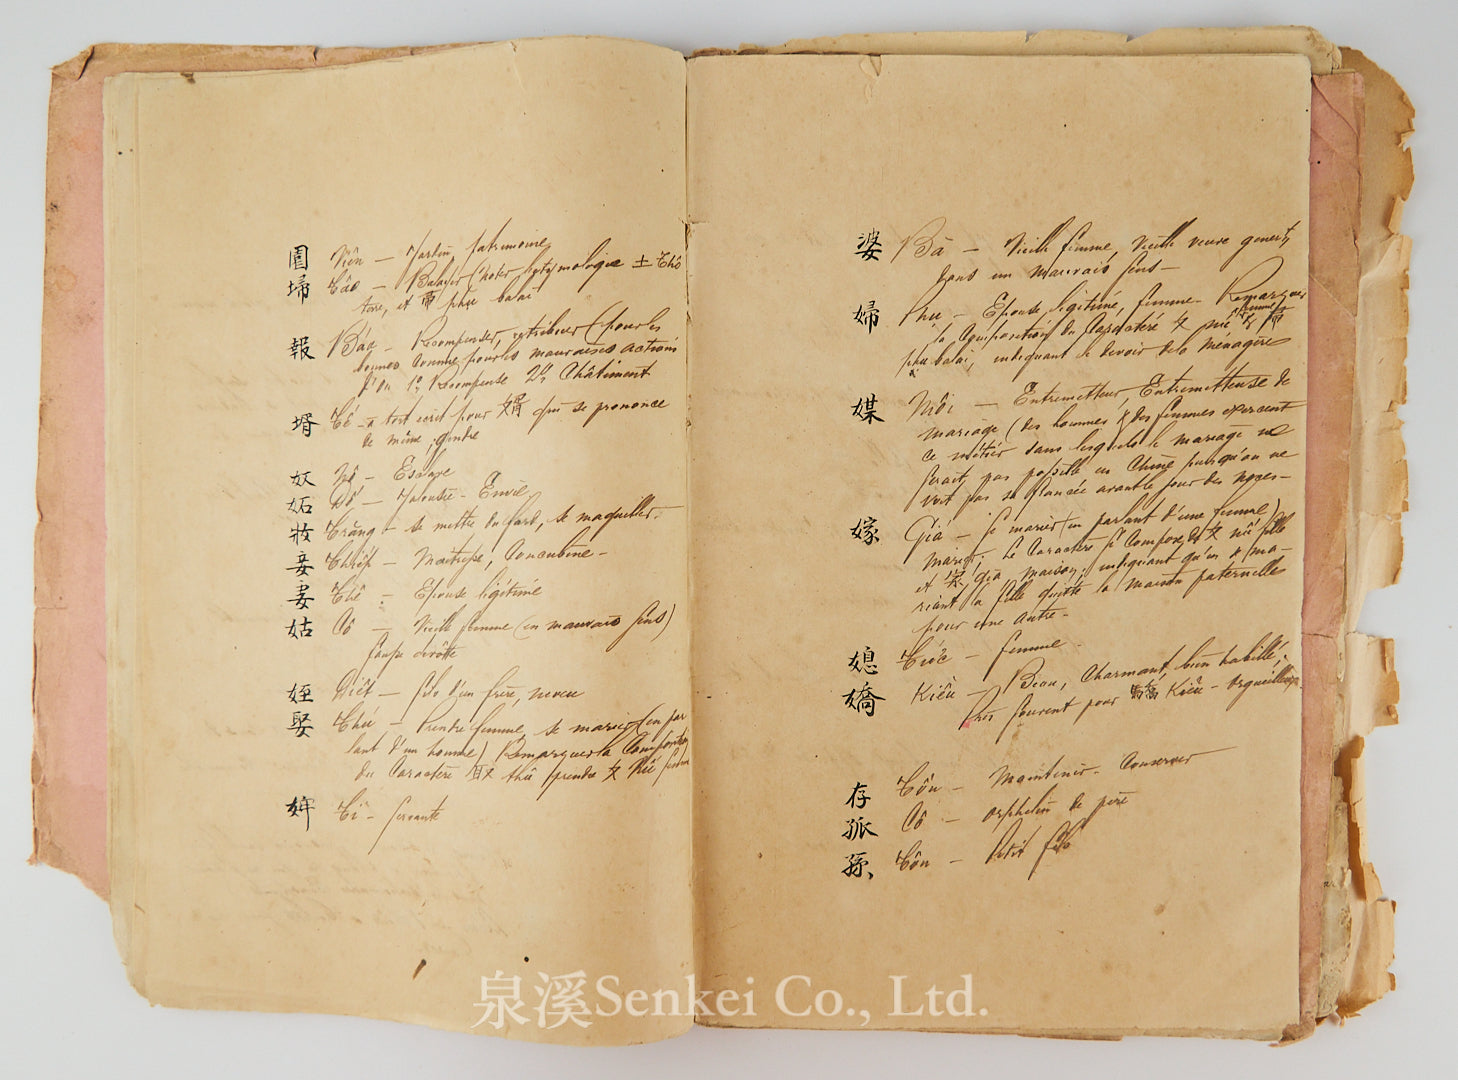 園 Viên — Jardin, patrimoine
埽 Tảo — Balayer (noter l'étymologie 土 Thổ
terre, et 帚 phụ balai
報 Báo — Récompenser, rétribuer (pour les
bonnes comme pour les mauvaises actions
1º Récompense 2º Châtiment
壻 Tế — a tort écrit pour 婿 qui se prononce
de même; gendre
奴 Nô — Esclave
妬 Đố — Jalousie — Envie
妝 Trang — se mettre du fard, se maquiller —
妾 Thiếp — Maitresse, Concubine —
妻 Thê — Epouse légitime
姑 Cô — Vieille femme (en mauvais sens)
fausse dévôte
姪 Điệt — fils d'un frère, neveu
娶 Thú — Prendre femme, se marier (en par
lant d'un homme) Remarquer la Composition
du Caractère 取 thủ prendre 女 nữ femme
婢 Tì — Servante
婆 Bà — Vieille femme, Vieille veuve genert
dans un mauvais sens —
婦 Phụ — Epouse légitime, femme — Remarquer
la Composition du Caractère 女 nữ femme & 帚
phụ balai, indiquant le devoir de la ménagère
媒 Môi — Entremetteur, Entremetteuse de
mariage (des hommes & des femmes exercent
ce métier sans lesquels le mariage ne
serait pas possible en Chine puisqu'on ne
voit pas sa fiancée avant le jour des noces —
嫁 Giá — se marier (en parlant d'une femme)
marier. Le Caractère se compose de 女 nữ fille
et 家 gia maison; indiquant qu'en se ma-
riant la fille quitte la maison paternelle
pour une autre —
媳 Tức — femme —
嬌 Kiều — Beau, Charmant, bien habillé;
Très souvent pour 驕 Kiêu — orgueilleux
存 Tồn — Maintenir — Conserver
孤 Cô — orphelin de père
孫 Tôn — Petit fils
泉溪Senkei Co., Ltd.